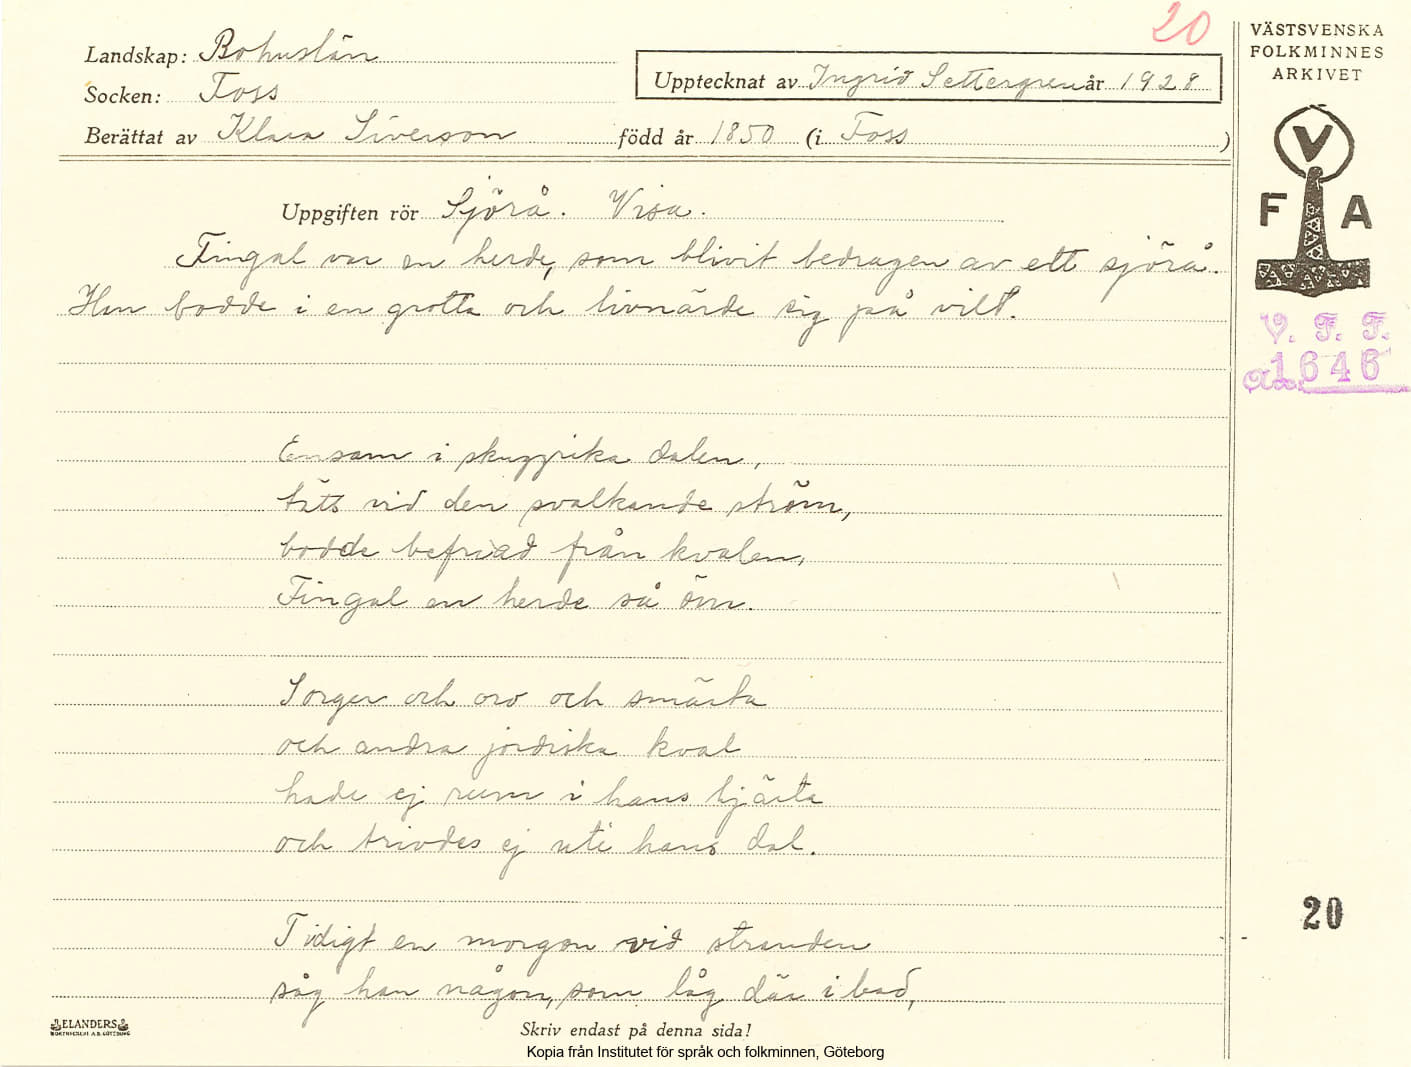 20
Landskap: Bohuslän
Socken: Foss
Upptecknat av Ingrid Settergren år 1928
Berättat av Klara Siverson född år 1850 (i Foss )
VÄSTSVENSKA
FOLKMINNES
ARKIVET
V
F A
V. F. F.
1646
Uppgiften rör Sjörå. Visa.
Fingal var en herde, som blivit bedragen av ett sjörå.
Han bodde i en grotta och livnärde sig på vilt.
Ensam i skuggrika dalen,
täts vid den svalkande ström,
bodde befriad från kvalen,
Fingal en herde så öm.
Sorger och oro och smärta
och andra jordiska kval
hade ej rum i hans hjärta
och trivdes ej uti hans dal.
Tidigt en morgon vid stranden
såg han någon, som låg där i bad,
20
ELANDERS
Skriv endast på denna sida!
Kopia från Institutet för språk och folkminnen, Göteborg